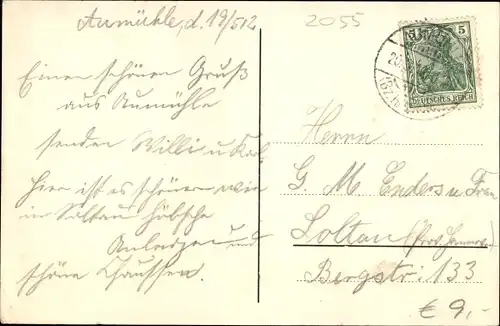 Aumühle, d. 19/5 12
2055
5
DEUTSCHES REICH
Einen schönen Gruß
aus Aumühle
senden Willi u Karl.
Hier ist es schöner wie
in Soltau hübsche
Anlagen und
schöne Chaussen.
Herrn
G M Enders u Frau
Soltau (Prov. Hannov.)
Bergstr. 133
€ 9,-